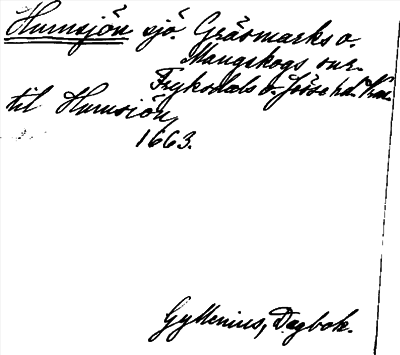 Humsjön sjö. Gräsmarks o.
Mangskogs snr.
Fryksdals o. Jösse hd. Vrm.
til Humsiön
1663.
Gyllenius, Dagbok.